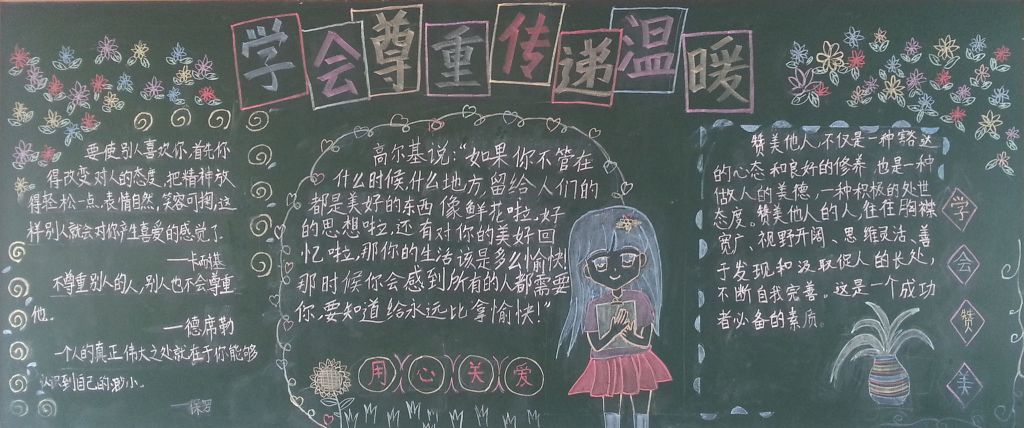 学会尊重传递温暖
要使别人喜欢你,首先你
得改变对人的态度,把精神放
得轻松一点,表情自然,笑容可掬,这
样别人就会对你产生喜爱的感觉了.
—卡耐基
不尊重别人的人,别人也不会尊重
他。
—德席勒
一个人的真正伟大之处就在于你能够
认识到自己的渺小。
高尔基说:“如果你不管在
什么时候,什么地方,留给人们的
都是美好的东西像鲜花啦,好
的思想啦,还有对你的美好回
忆啦,那你的生活该是多么愉快
那时候你会感到所有的人都需要
你,要知道给永远比拿愉快!”
用心关爱
赞美他人,不仅是一种豁达
的心态和良好的修养,也是一种
做人的美德,一种积极的处世
态度。赞美他人的人,往往胸襟
宽广、视野开阔、思维灵活、善
于发现和汲取他人的长处,
不断自我完善。这是一个成功
者必备的素质。
学
会
赞
美